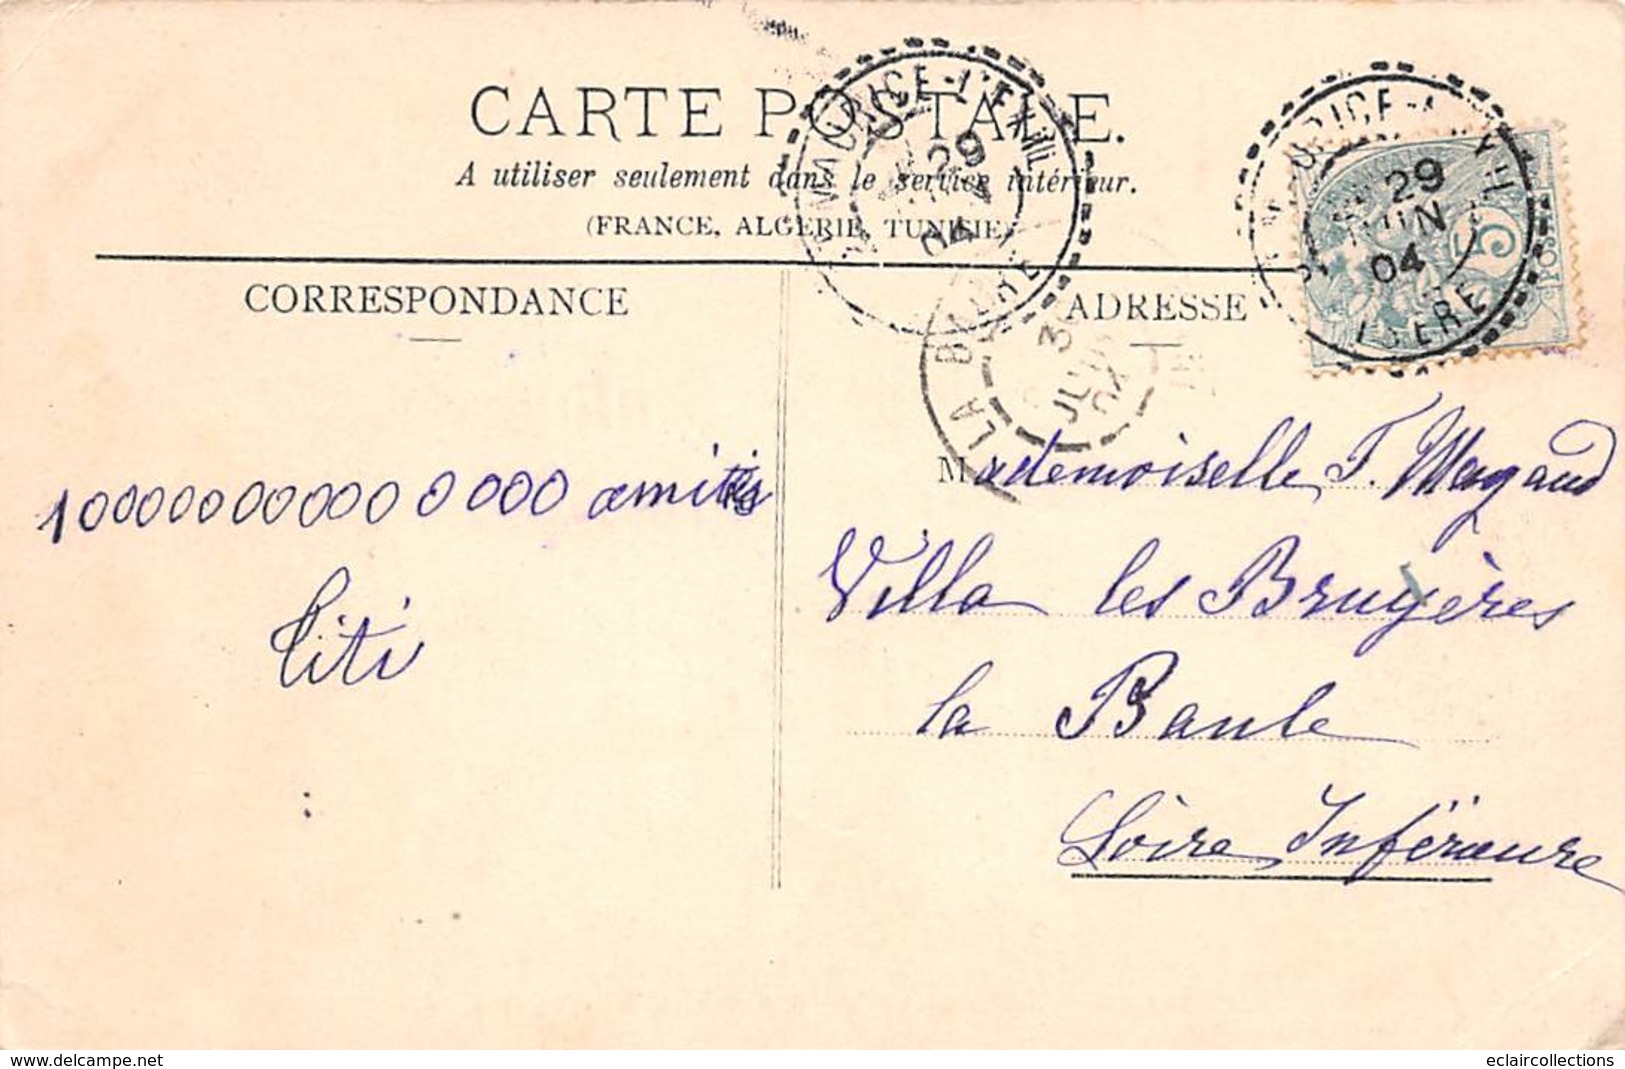 CARTE POSTALE.
A utiliser seulement dans le service intérieur.
(FRANCE, ALGERIE, TUNISIE)
CORRESPONDANCE
ADRESSE
ST MAURICE-L'EXIL
29
JUIN
04
ISERE
29
04
ISERE
LA BAULE
30
JUIN
04
5
10000000000000 amitiés
Titi
Mademoiselle T. Magaud
Villa les Bruyères
la Baule
Loire Inférieure
delcampe.net
eclaircollections